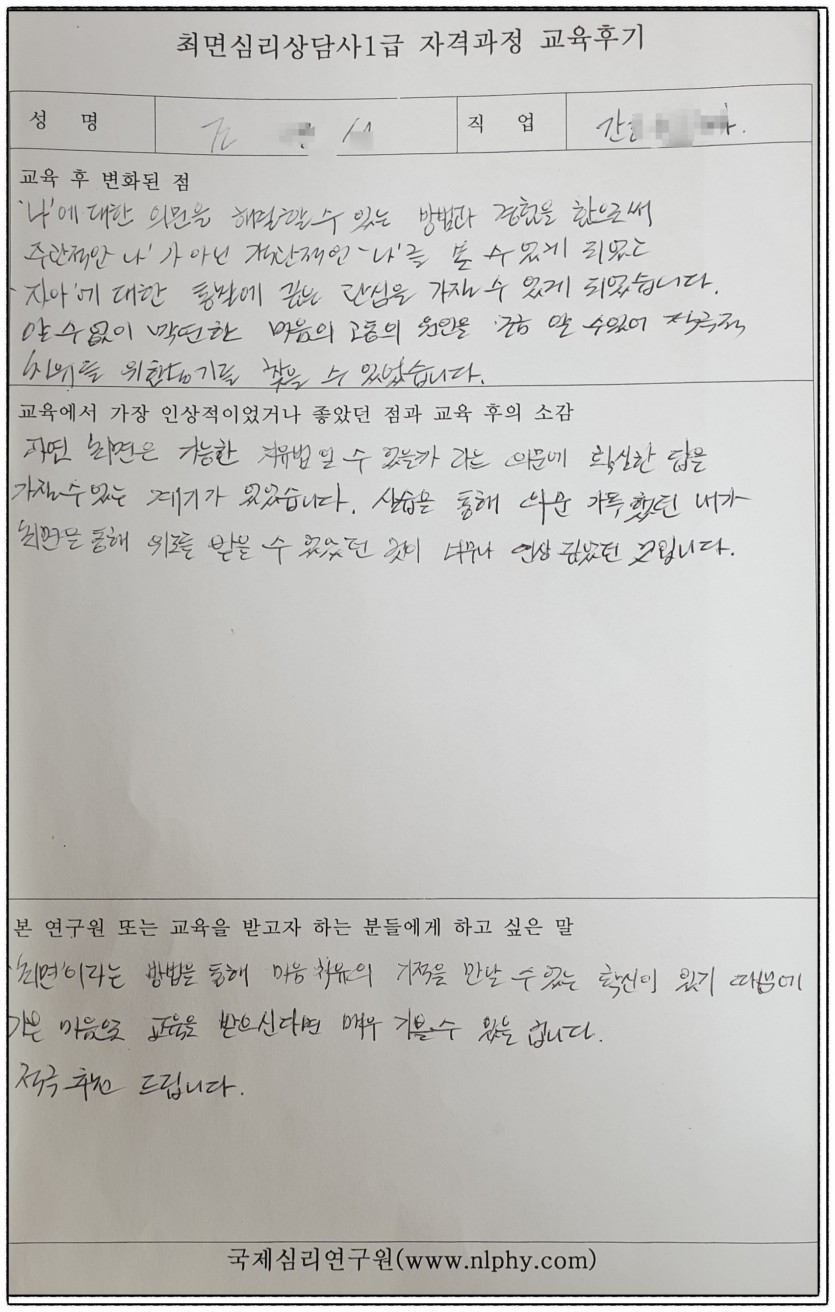 최면심리상담사1급 자격과정 교육후기
성 명 김 직 업 간
교육 후 변화된 점
'나'에 대한 의문을 해답할 수 있는 방법과 경험을 함으로써
주관적인 나'가 아닌 객관적인 '나'를 볼 수 있게 되었고
'자아'에 대한 통찰에 깊은 관심을 가질 수 있게 되었습니다.
알 수 없이 막연한 마음의 고통의 원인을 알 수 있어 적극적
치유를 위한 계기를 찾을 수 있었습니다.
교육에서 가장 인상적이었거나 좋았던 점과 교육 후의 소감
과연 '최면은 가능한 치유법일 수 있을까 라는 의문에 확실한 답을
가질 수 있는 계기가 있었습니다. 실습을 통해 했던 내가
'최면'을 통해 위로를 받을 수 있었던 것이 너무나 인상 깊었던 것입니다.
본 연구원 또는 교육을 받고자 하는 분들에게 하고 싶은 말
'최면'이라는 방법을 통해 마음 치유의 기적을 만날 수 있는 확신이 있기 때문에
마음으로 교육을 받으신다면 매우 기쁠 수 있을 겁니다.
적극 추천 드립니다.
국제심리연구원(www.nlphy.com)